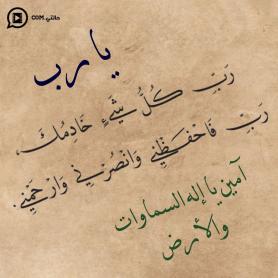 حالتي.COM
يا رب
رَبِّ كُلُّ شَيْءٍ خَادِمُكَ،
رَبِّ فَاحْفَظْنِي وَانْصُرْنِي وَارْحَمْنِي.
آمين يا إله السماوات
والأرض